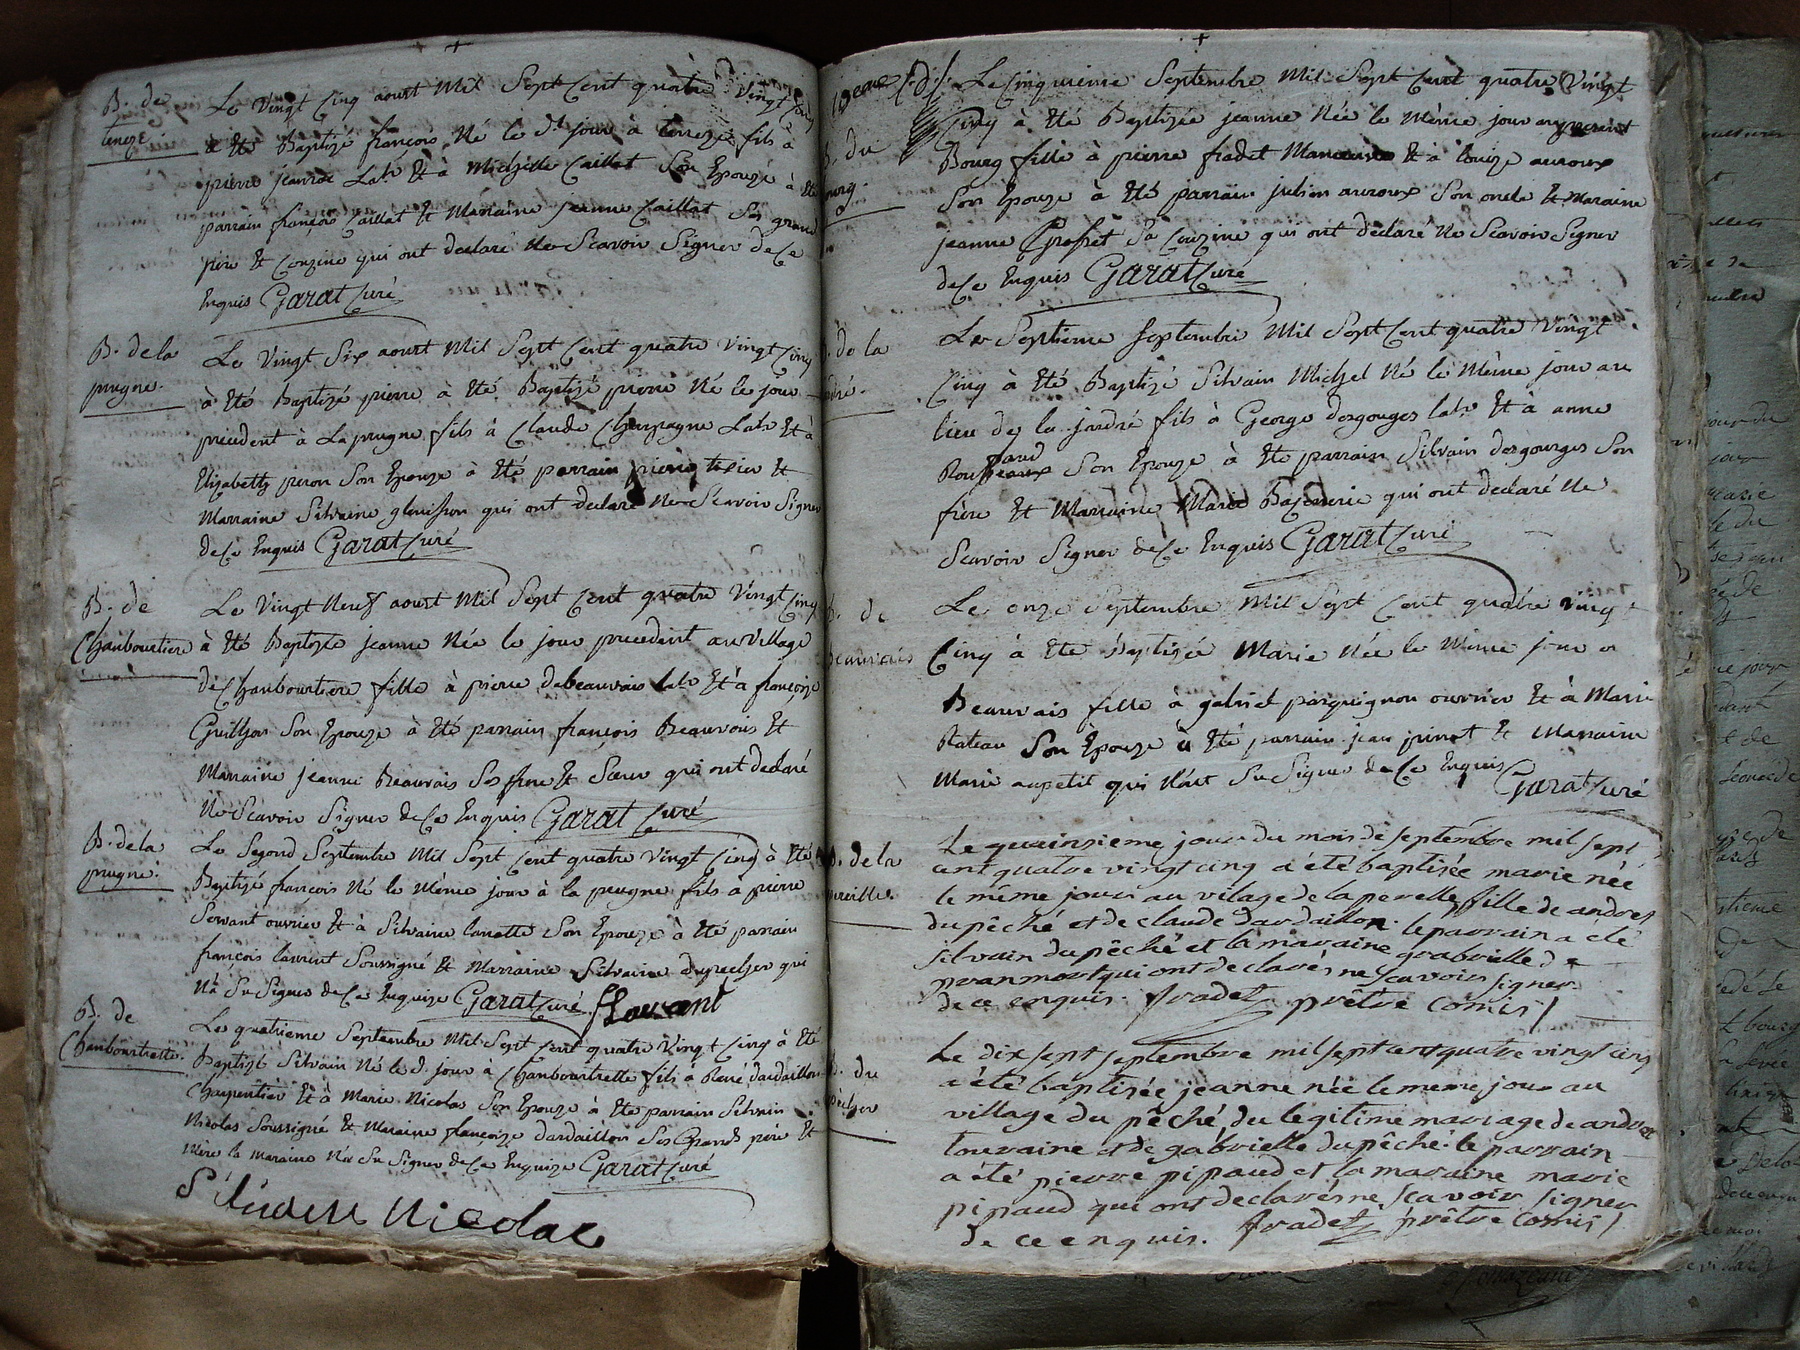 B. de
teneze
Le Vingt Cinq aoust Mil Sept Cent quatre Vingt Cinq
à Eté Baptizé françois Né le dt jour à teneze fils à
pierre Labr Et à Michelle Caillat Son Epouze à Eté
parrain françois Caillat Et Marraine jeanne Caillat Ses grand
pere Et Couzine qui ont declaré Ne Scavoir Signer de Ce
Enquis Garat Curé
B. de la
prugne.
Le Vingt Six aoust Mil Sept Cent quatre Vingt Cinq
à Eté Baptizé pierre à Eté Baptizé pierre Né le jour
precedent à La prugne fils à Claude Champagne Labr Et à
Elizabeth peron Son Epouze à Eté parrain pierre texier Et
Marraine Silvaine qui ont declaré Ne Scavoir Signer
de Ce Enquis Garat Curé
B. de
Chanbourtiere
Le Vingt Neuf aoust Mil Sept Cent quatre Vingt Cinq
à Eté Baptizée jeanne Née le jour precedent au village
de Chanbourtiere fille à pierre debeauvais Labr Et à françoize
Guillon Son Epouze à Eté parrain françois Beauvois Et
Marraine jeanne Beauvais Ses frere Et Sœur qui ont declaré
Ne Scavoir Signer de Ce Enquis Garat Curé
B. de la
prugne.
Le Segond Septembre Mil Sept Cent quatre Vingt Cinq à Eté
Baptizé françois Né le Même jour à la prugne fils à pierre
Servant ouvrier Et à Silvaine Son Epouze à Eté parrain
françois laurent Soussigné Et Marraine Silvaine dupecher qui
Na Su Signer de Ce Enquize Garat Curé
B. de
Chanbourtrette.
Le quatrieme Septembre Mil Sept Cent quatre Vingt Cinq à Eté
Baptizé Silvain Né le d. jour à Chanbourtrette fils à René dardaillon
Charpentier Et à Marie Nicolas Son Epouze à Eté parrain Silvain
Nicolas Soussigné Et Maraine françoize dardaillon Ses Grands père Et
Mère la maraine Na Su Signer de Ce Enquize Garat Curé
Silvain Nicolas
B. du
bourg.
Le Cinquieme Septembre Mil Sept Cent quatre Vingt
Cinq à Eté Baptizée jeanne Née le Même jour au present
Bourg fille à pierre fradet Et à louize auroux
Son Epouze à Eté parrain julien auroux Son oncle Et Maraine
jeanne Grosset Sa Couzine qui ont déclaré Ne Scavoir Signer
de Ce Enquis Garat Curé
de la
jardré.
Le Septieme Septembre Mil Sept Cent quatre Vingt
Cinq à Eté Baptizé Silvain Michel Né le Même jour au
lieu de la jardré fils à George desgouges labr Et à anne
Son Epouze à Eté parrain Silvain desgouges Son
frère Et Marraine Marie qui ont declaré Ne
Scavoir Signer de Ce Enquis Garat Curé
B. de
Beauvais
Le onze Septembre Mil Sept Cent quatre vingt
Cinq à Eté Baptizée Marie Née le Même jour a
Beauvais fille à gabriel parquignon ouvrier Et à Marie
Rateau Son Epouze à Eté parrain jean pinot Et Marraine
Marie aupetit qui N'ont Su Signer de Ce Enquis
Garat Curé
B. de la
pereille.
Le quainsieme jour du mois de septembre mil sept
cent quatre vingt cinq a été baptisée marie née
le même jour au vilage de la perelle fille de andre
du pêché et de claude dardaillon. le parrain a été
silvain du pêché et la maraine gabrielle de
pranmort qui ont declarés ne scavoir signer
de ce enquis. fradet prêtre comis
B. du
pecher
Le dix sept septembre mil sept cent quatre vingt cinq
a été baptisée jeanne née le meme jour au
village du pêché, du legitime mariage de andre
touraine et de gabrielle du pêché: le parrain
a été pierre pipaud et la maraine marie
pipaud qui ont declarés ne scavoir signer
de ce enquis. fradet prêtre comis